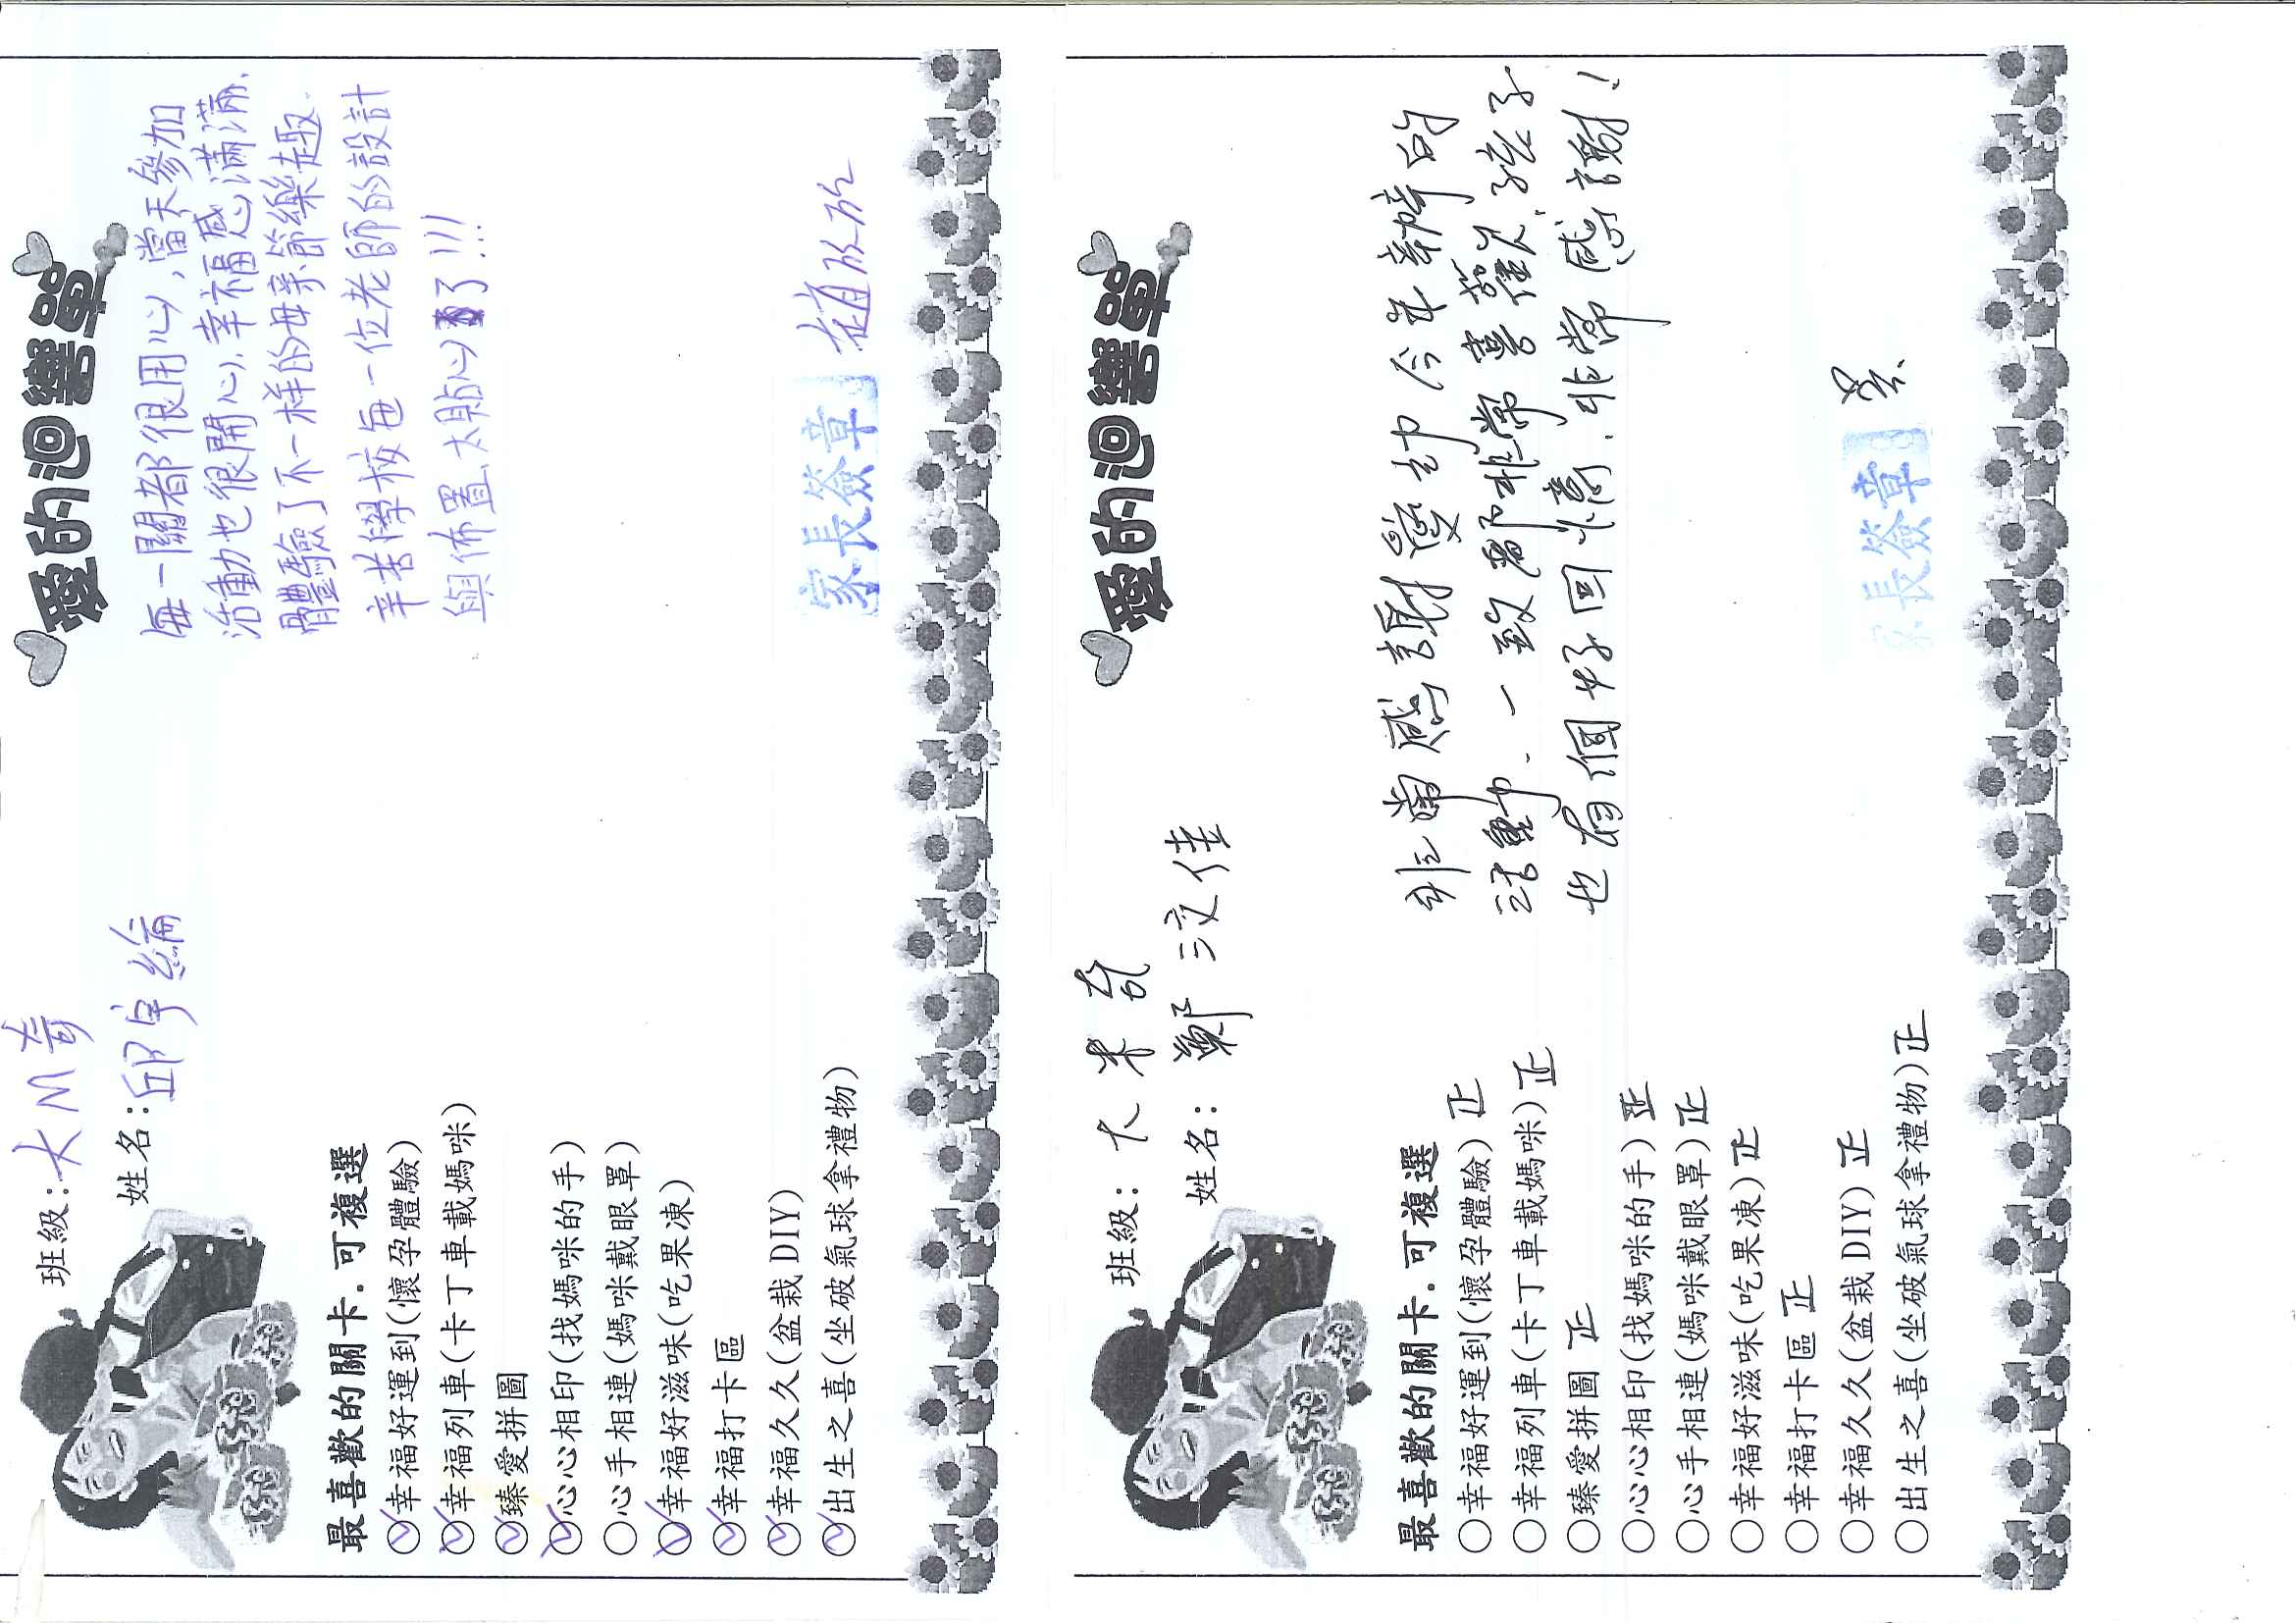 班級:大M奇
姓名:邱宇綸
愛的迴響單
每一關都很用心,當天參加
活動也很開心、幸福感滿滿.
體驗了不一样的母亲節樂趣.
辛苦學校每一位老師的設計
與佈置 太貼心了!!!
最喜歡的關卡.可複選
幸福好運到(懷孕體驗)
幸福列車(卡丁車載媽咪)
臻愛拼圖
心心相印(找媽咪的手)
心手相連(媽咪戴眼罩)
幸福好滋味(吃果凍)
幸福打卡區
幸福久久(盆栽DIY)
出生之喜(坐破氣球拿禮物)
家長簽章
班級:大米奇
姓名:鄭汶佳
愛的迴響單
非常感謝愛幼今年舉辦的
活動、一致都非常喜歡,孩子
也有個好回憶.非常感謝!
最喜歡的關卡.可複選
幸福好運到(懷孕體驗)正
幸福列車(卡丁車載媽咪)正
臻愛拼圖 正
心心相印(找媽咪的手)正
心手相連(媽咪戴眼罩)正
幸福好滋味(吃果凍)正
幸福打卡區 正
幸福久久(盆栽DIY)正
出生之喜(坐破氣球拿禮物)正
家長簽章